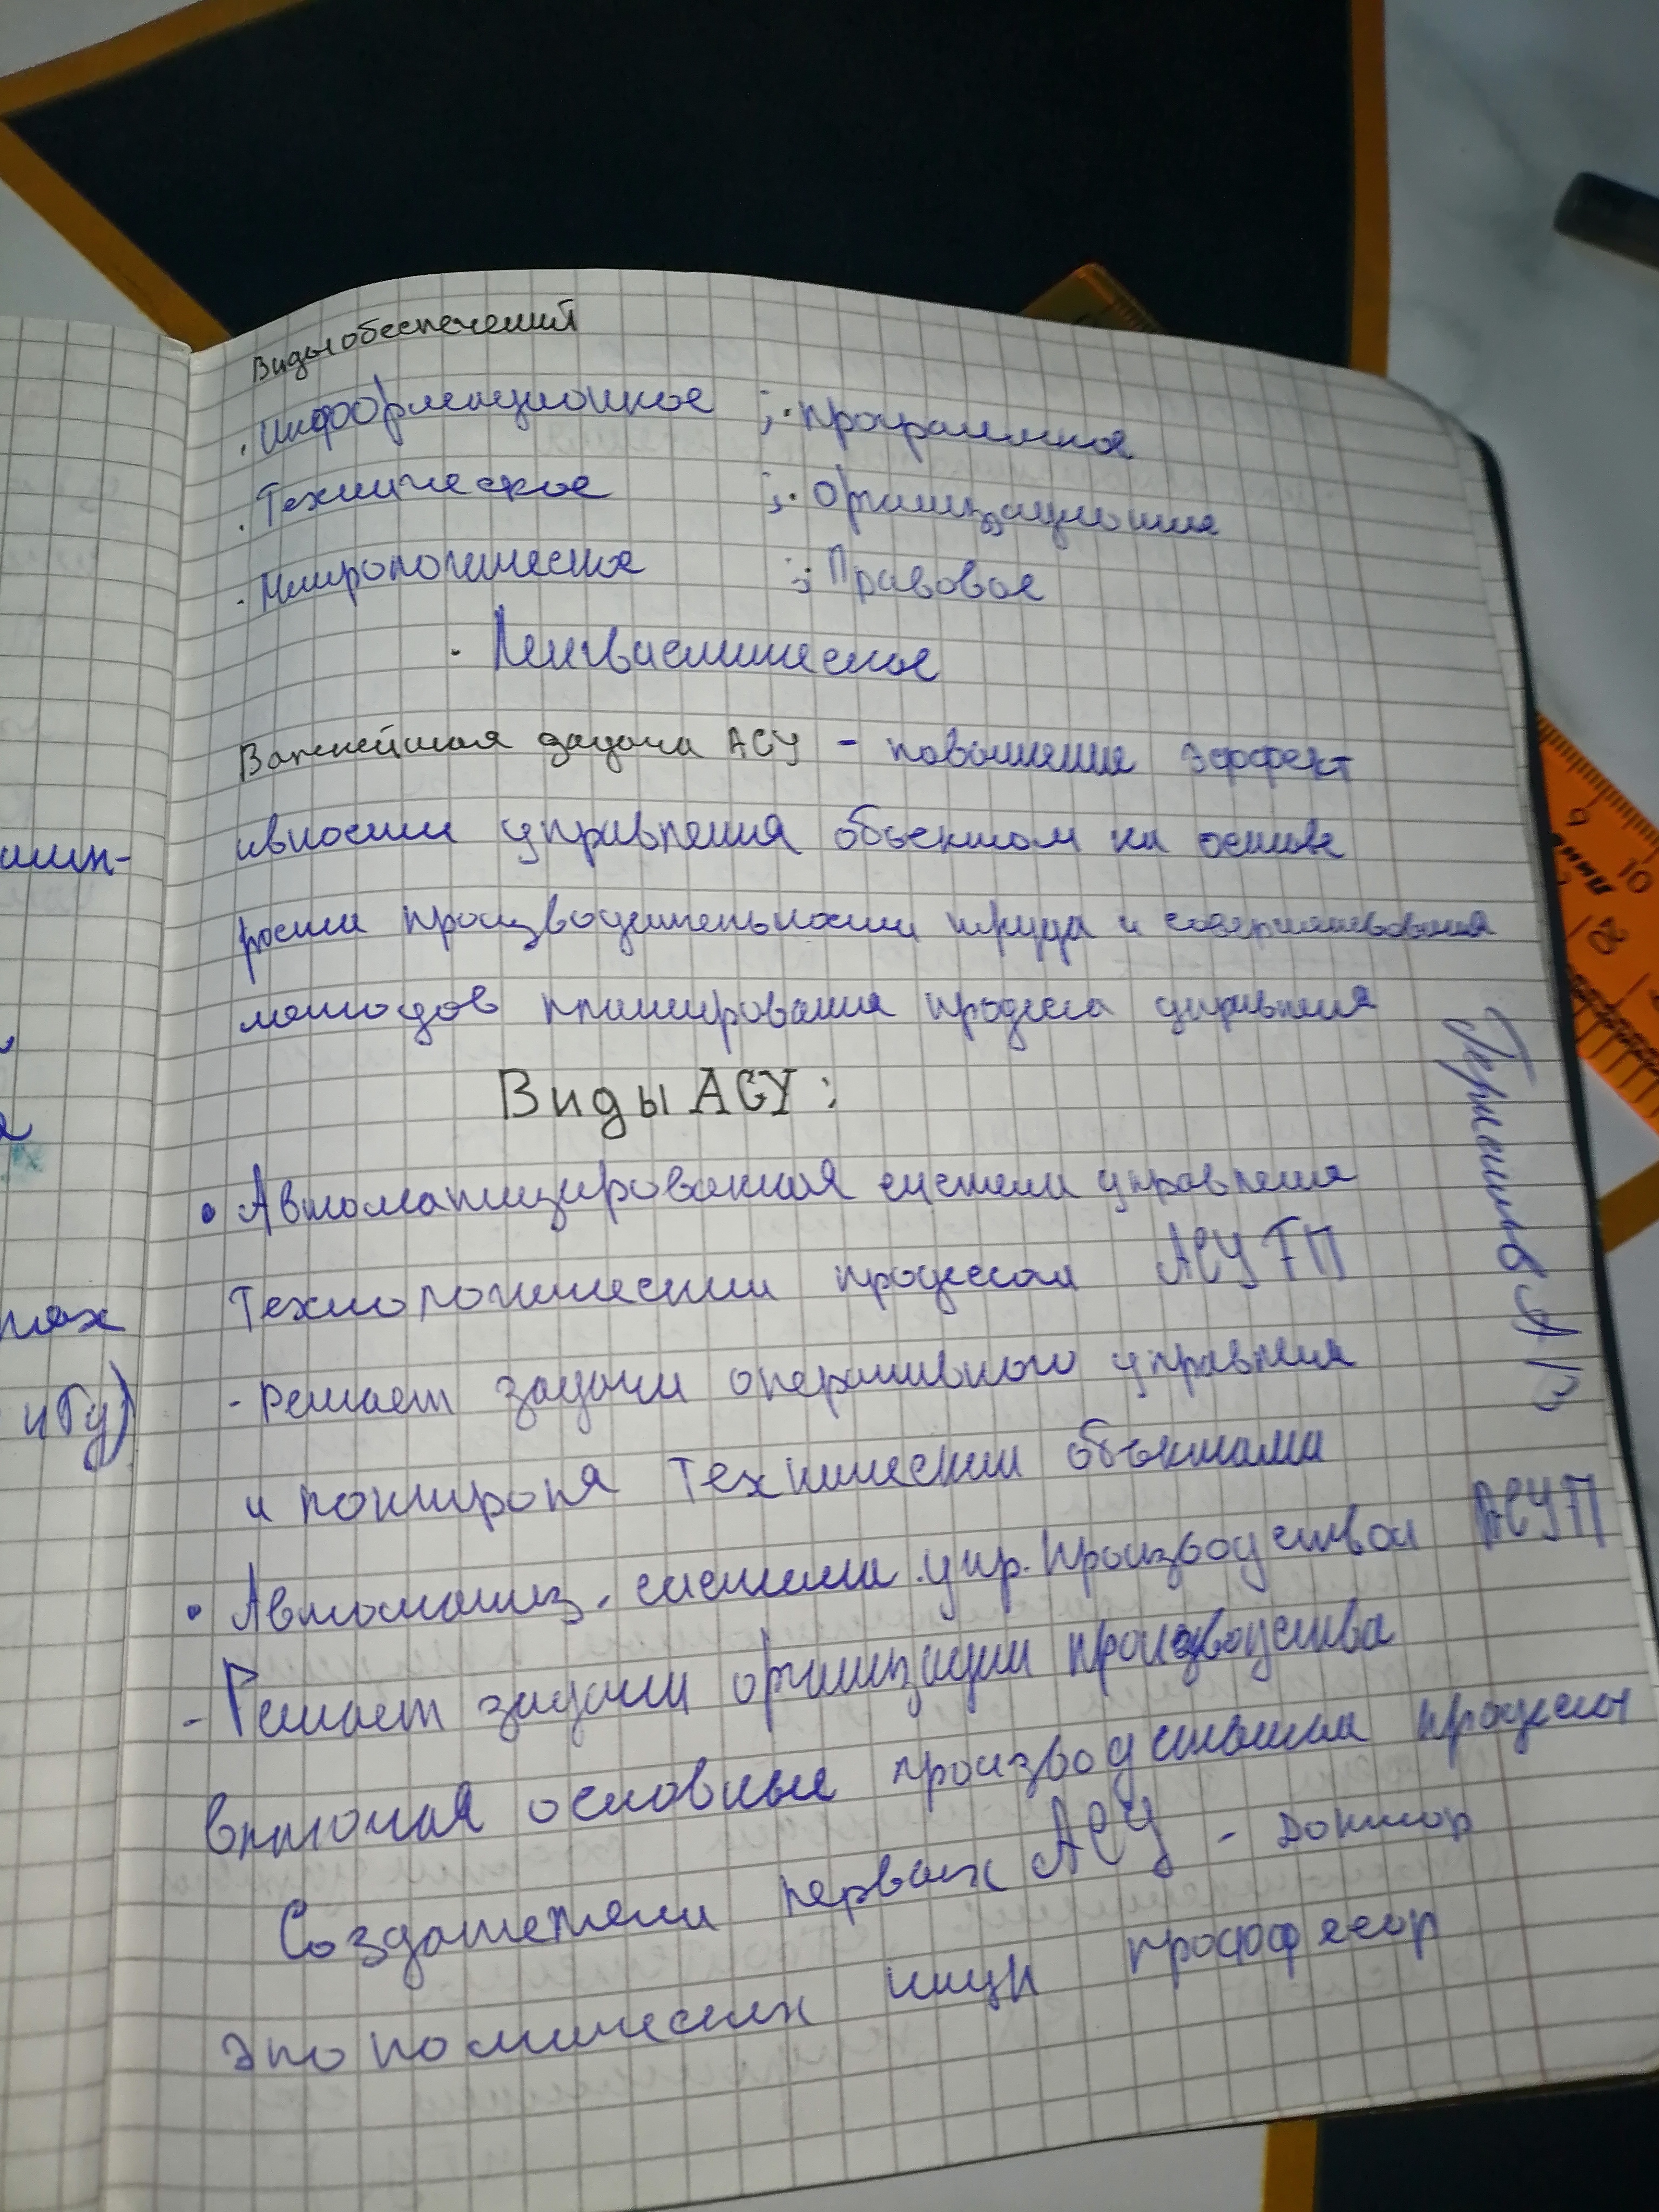 Виды обеспечений
· Информационное ; · программное
· Техническое ; · Организационное
· Метрологическое ; · Правовое
· Лингвистическое
Важнейшая задача АСУ - повышение эффект
ивности управления объектом на основе
роста производительности труда и совершенствования
методов планирования процесса управления
Виды АСУ:
• Автоматизированная система управления
Технологическим процессом АСУ ТП
- решает задачи оперативного управления
и контроля техническими объектами
• Автоматиз. система упр. производством АСУП
- Решает задачи организации производства
включая основные производственные процессы
Создателем первых АСУ - доктор
экономических наук профессор
цбу)